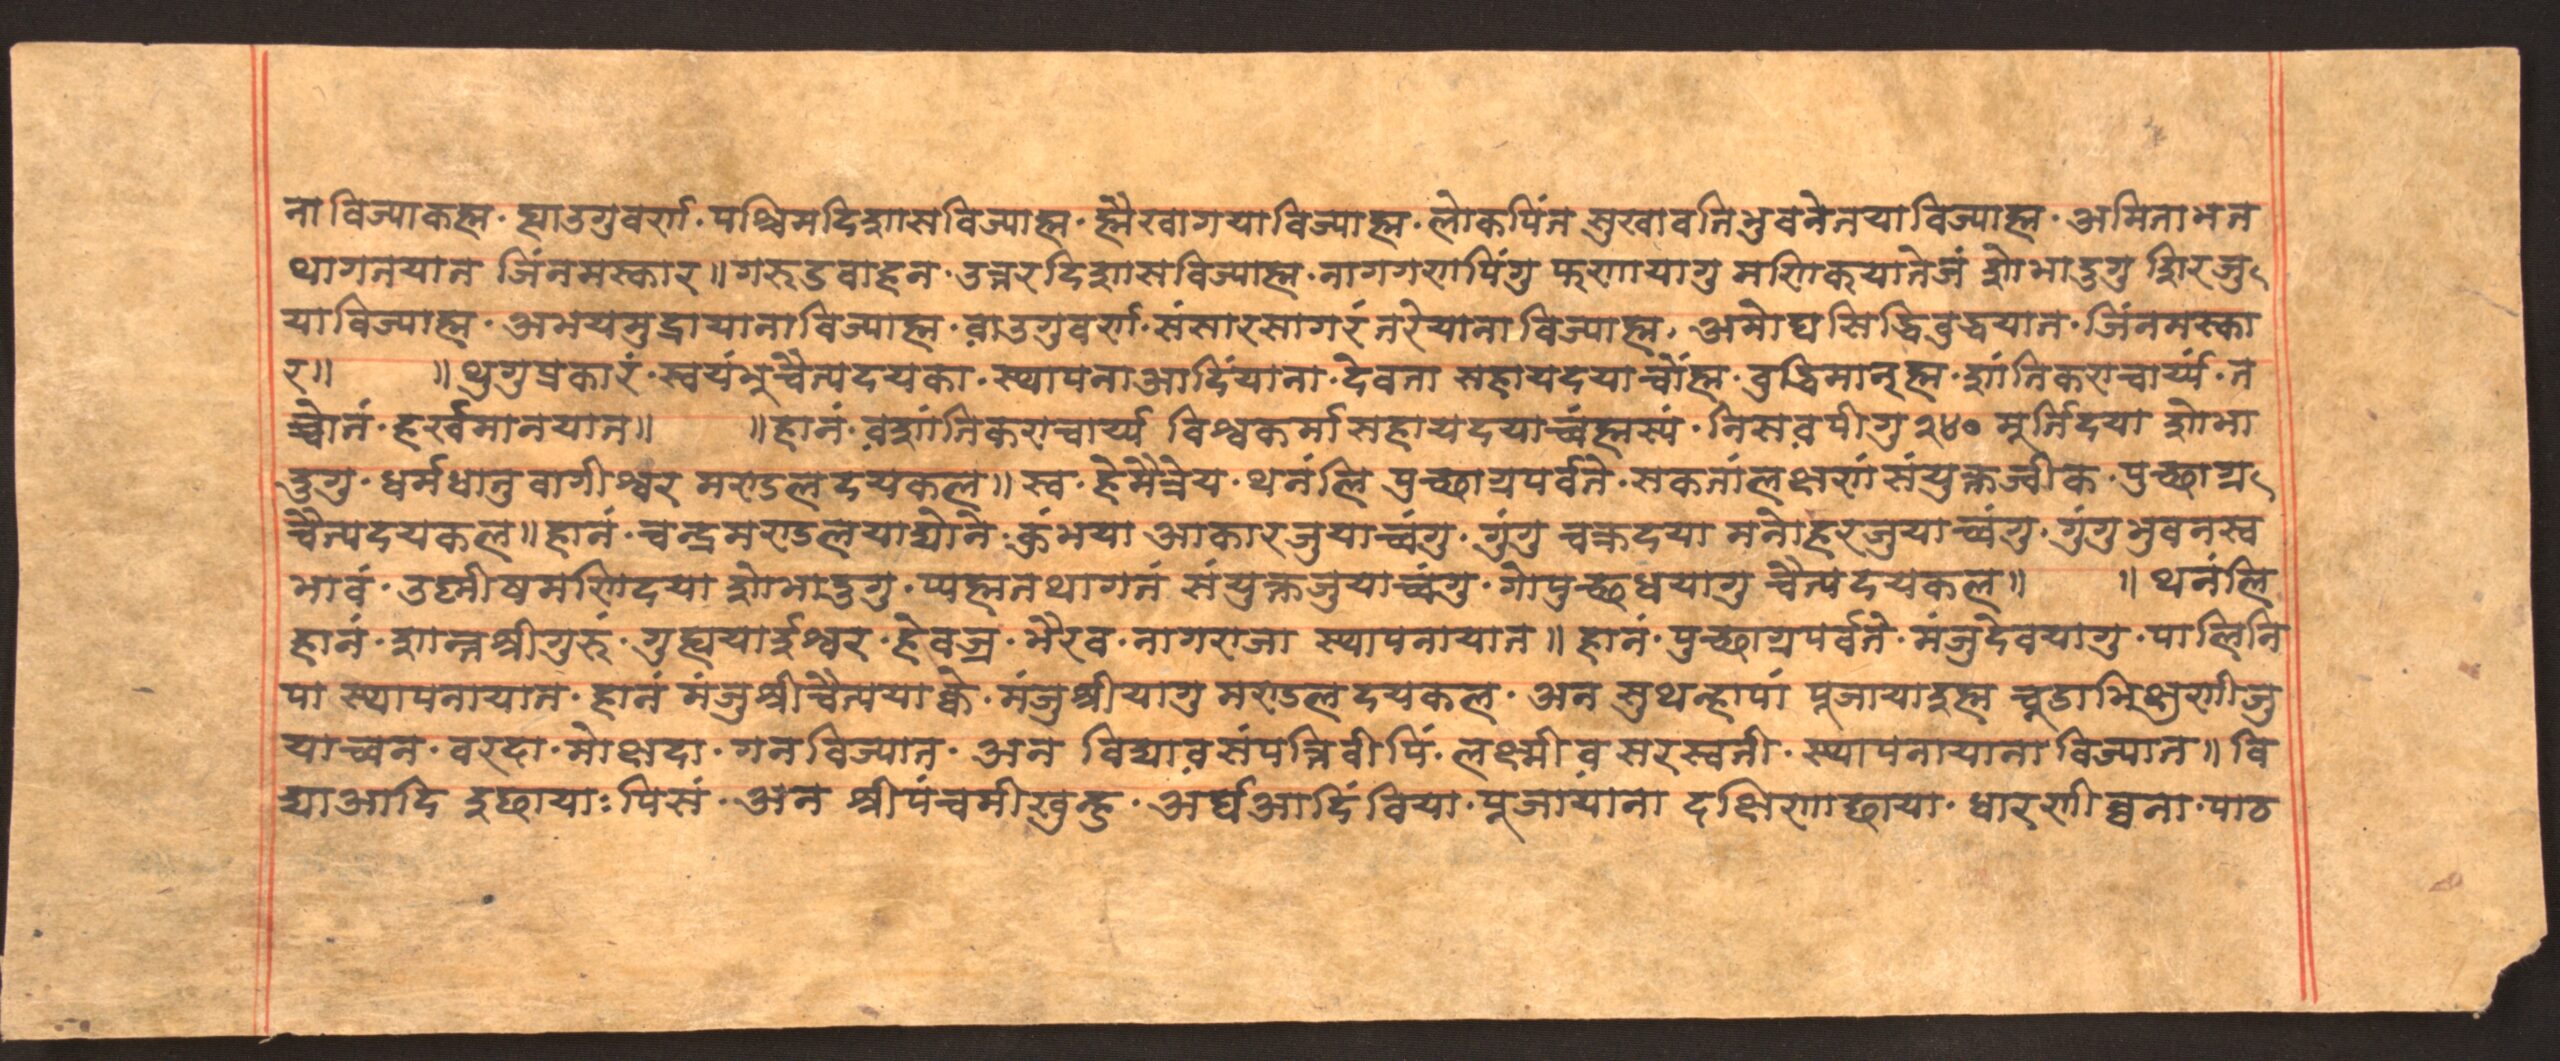 ना विज्याकह्म · ह्याउगुवर्ण · पश्चिमदिशास विज्याह्म · ह्मैखागया विज्याह्म · लोकपिंत सुखावतिभुवनेतया विज्याह्म · अमिताभत
थागतयात जिंनमस्कार ॥ गरुडवाहन · उत्तरदिशास विज्याह्म · नागगणपिंगु फणायागु मणिकयातेजं शोभादुगु शिरजु
याविज्याह्म · अभयमुद्रायाना विज्याह्म · वाउगुवर्ण · संसारसागरं तरेयाना विज्याह्म · अमोघसिद्धिबुद्धयात · जिंनमस्का
र ॥ ॥ थुगुप्रकारं · स्वयंभूचैत्यदयका · स्थापनाआदिंयाना · देवता सहायदयाच्वंह्म · बुद्धिमान्ह्म · शांतिकराचार्य्य · त
च्वोतं · हर्खमानयात ॥ ॥ हानं · वशांतिकराचार्य्य विश्वकर्मा सहायदयाच्वंह्मस्यं · निसवपीगु २४० मूर्तिदया शोभा
दुगु · धर्मधातुवागीश्वर मण्डल दयकल ॥ स्व · हेमैत्रेय · थनंलि पुच्छाग्रपर्वते · सकतांलक्षणं संयुक्तज्वीक · पुच्छाग्र
चैत्यदयकल ॥ हानं · चन्द्रमण्डलयाद्योने · क्रंभया आकारजुयाच्वंगु · गुंगु चक्रदया मनोहरजुयाच्वंगु · गुंगु भुवनस्व
भावं · उष्णीषमणिदया शोभादुगु · प्यह्मतथागतं संयुक्तजुयाच्वंगु · गोपुच्छधयागु चैत्यदयकल ॥ ॥ थनंलि
हानं · शान्तश्रीगुरुं · गुह्ययाईश्वर · हेवज्र · भैरव · नागराजा स्थापनायात ॥ हानं · पुच्छाग्रपर्वते · मंजुदेवयागु · पालिनि
पा स्थापनायात · हानं मंजुश्रीचैत्ययाक्वे · मंजुश्रीयागु मण्डल दयकल · अन सुथन्हापां पूजायाइह्म चूडाभिक्षुणीजु
याच्वन · वरदा · मोक्षदा · गनविज्यात · अन विद्यावसंपत्तिवीपिं · लक्ष्मी व सरस्वती · स्थापनायाना विज्यात ॥ वि
द्याआदि इछायाःपिसं · अन श्रीपंचमीखुन्हु · अर्घआदिं विया · पूजायाना दक्षिणाछाया · धारणीब्वना · पाठ